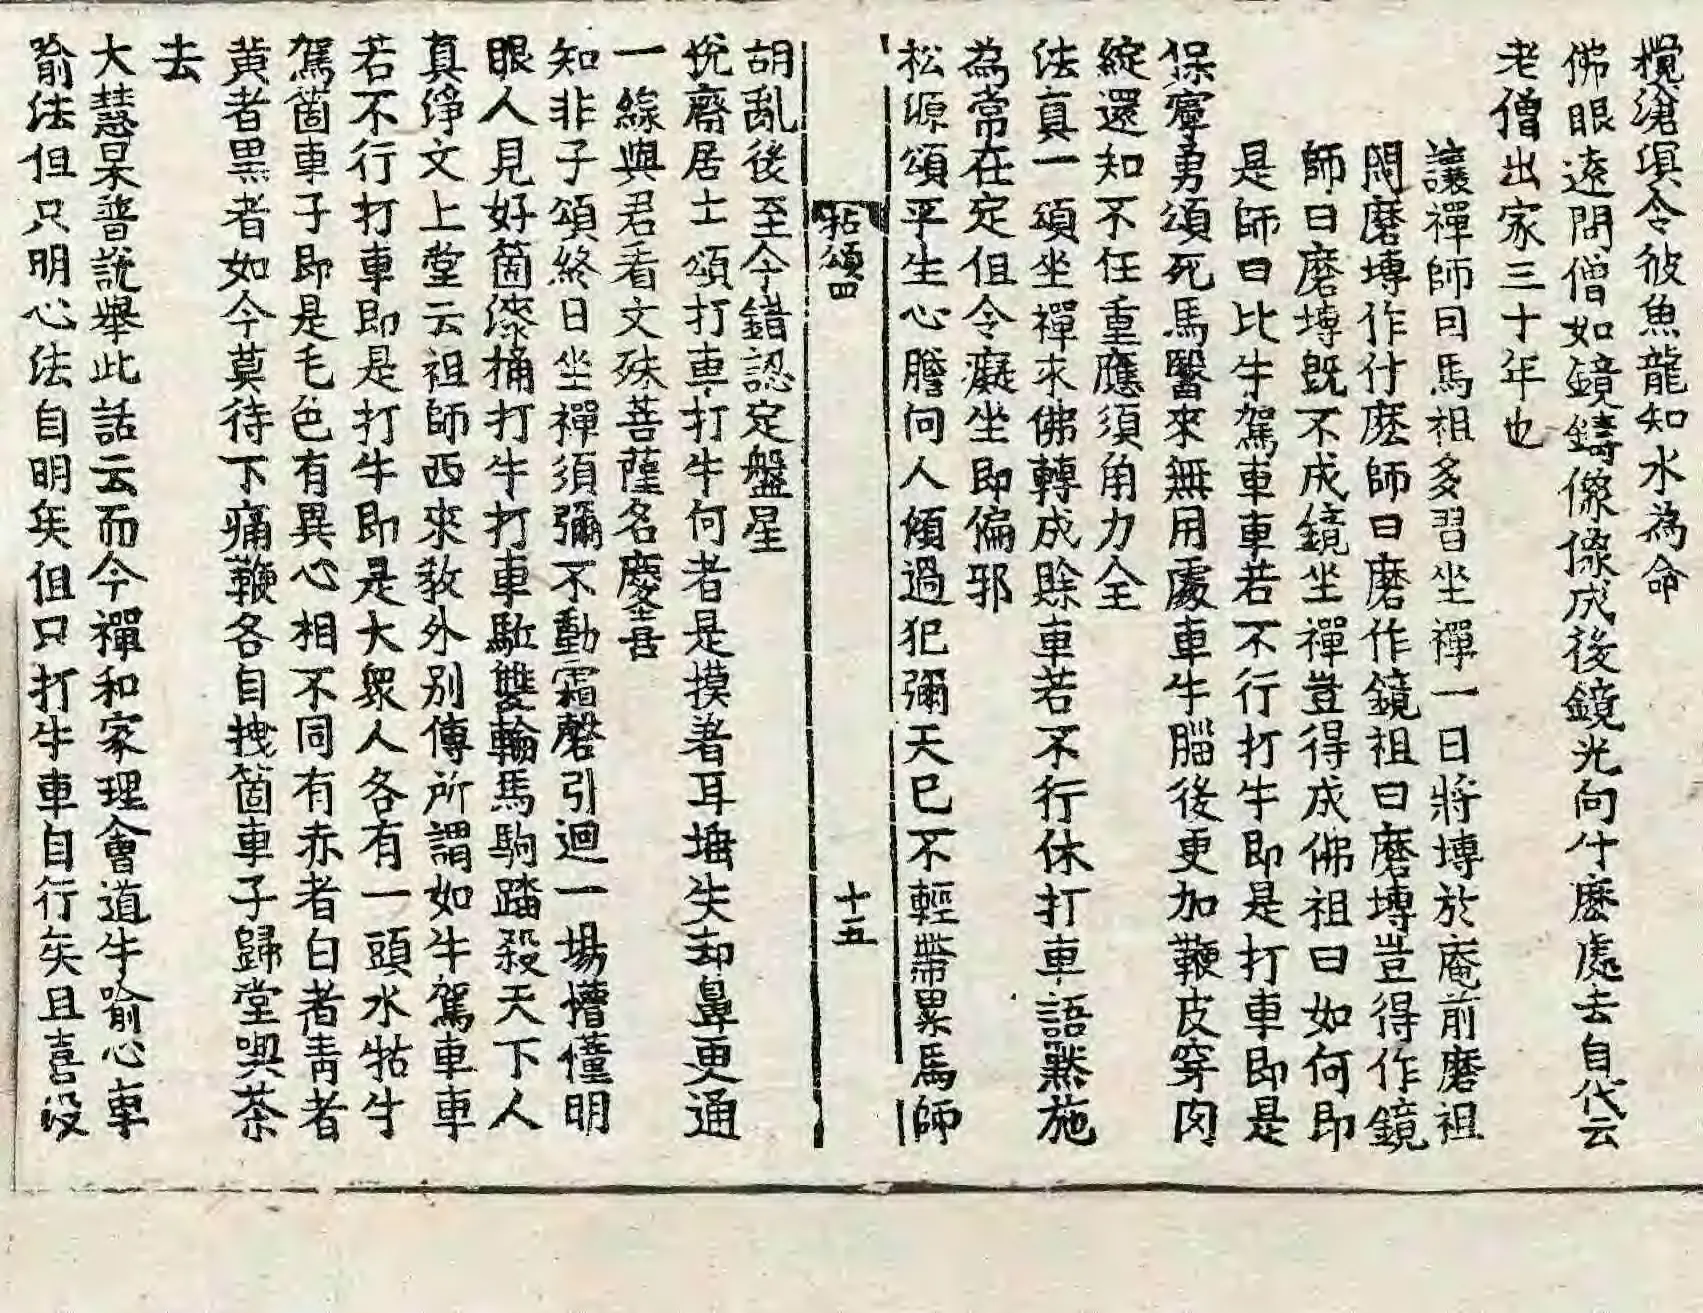 攪滄溟令彼魚龍知水為命
佛眼遠問僧如鏡鑄像像成後鏡光向什麽處去自代云
老僧出家三十年也
讓禪師曰馬祖多習坐禪一日將塼於庵前磨祖
問磨塼作什麽師曰磨作鏡祖曰磨塼豈得作鏡
師曰磨塼旣不成鏡坐禪豈得成佛祖曰如何即
是師曰比牛駕車車若不行打牛即是打車即是
保寧勇頌死馬醫來無用處車牛腦後更加鞭皮穿肉
綻還知不任重應須角力全
法真一頌坐禪求佛轉成賖車若不行休打車語黙施
為常在定但令癡坐即偏邪
松源頌平生心膽向人傾過犯彌天已不輕帶累馬師
拈頌四 十五
胡亂後至今錯認定盤星
悅齋居士頌打車打牛何者是摸著耳埵失却鼻更通
一線與君看文殊菩薩名慶喜
知非子頌終日坐禪須彌不動霜磬引迴一場懵懂明
眼人見好箇漆桶打牛打車駈雙輪馬駒踏殺天下人
真淨文上堂云祖師西來敎外別傳所謂如牛駕車車
若不行打車即是打牛即是大衆人各有一頭水牯牛
駕箇車子即是毛色有異心相不同有赤者白者靑者
黄者黑者如今莫待下痛鞭各自拽箇車子歸堂喫茶
去
大慧杲普說舉此話云而今禪和家理會道牛喻心車
喻法但只明心法自明矣但只打牛車自行矣且喜沒